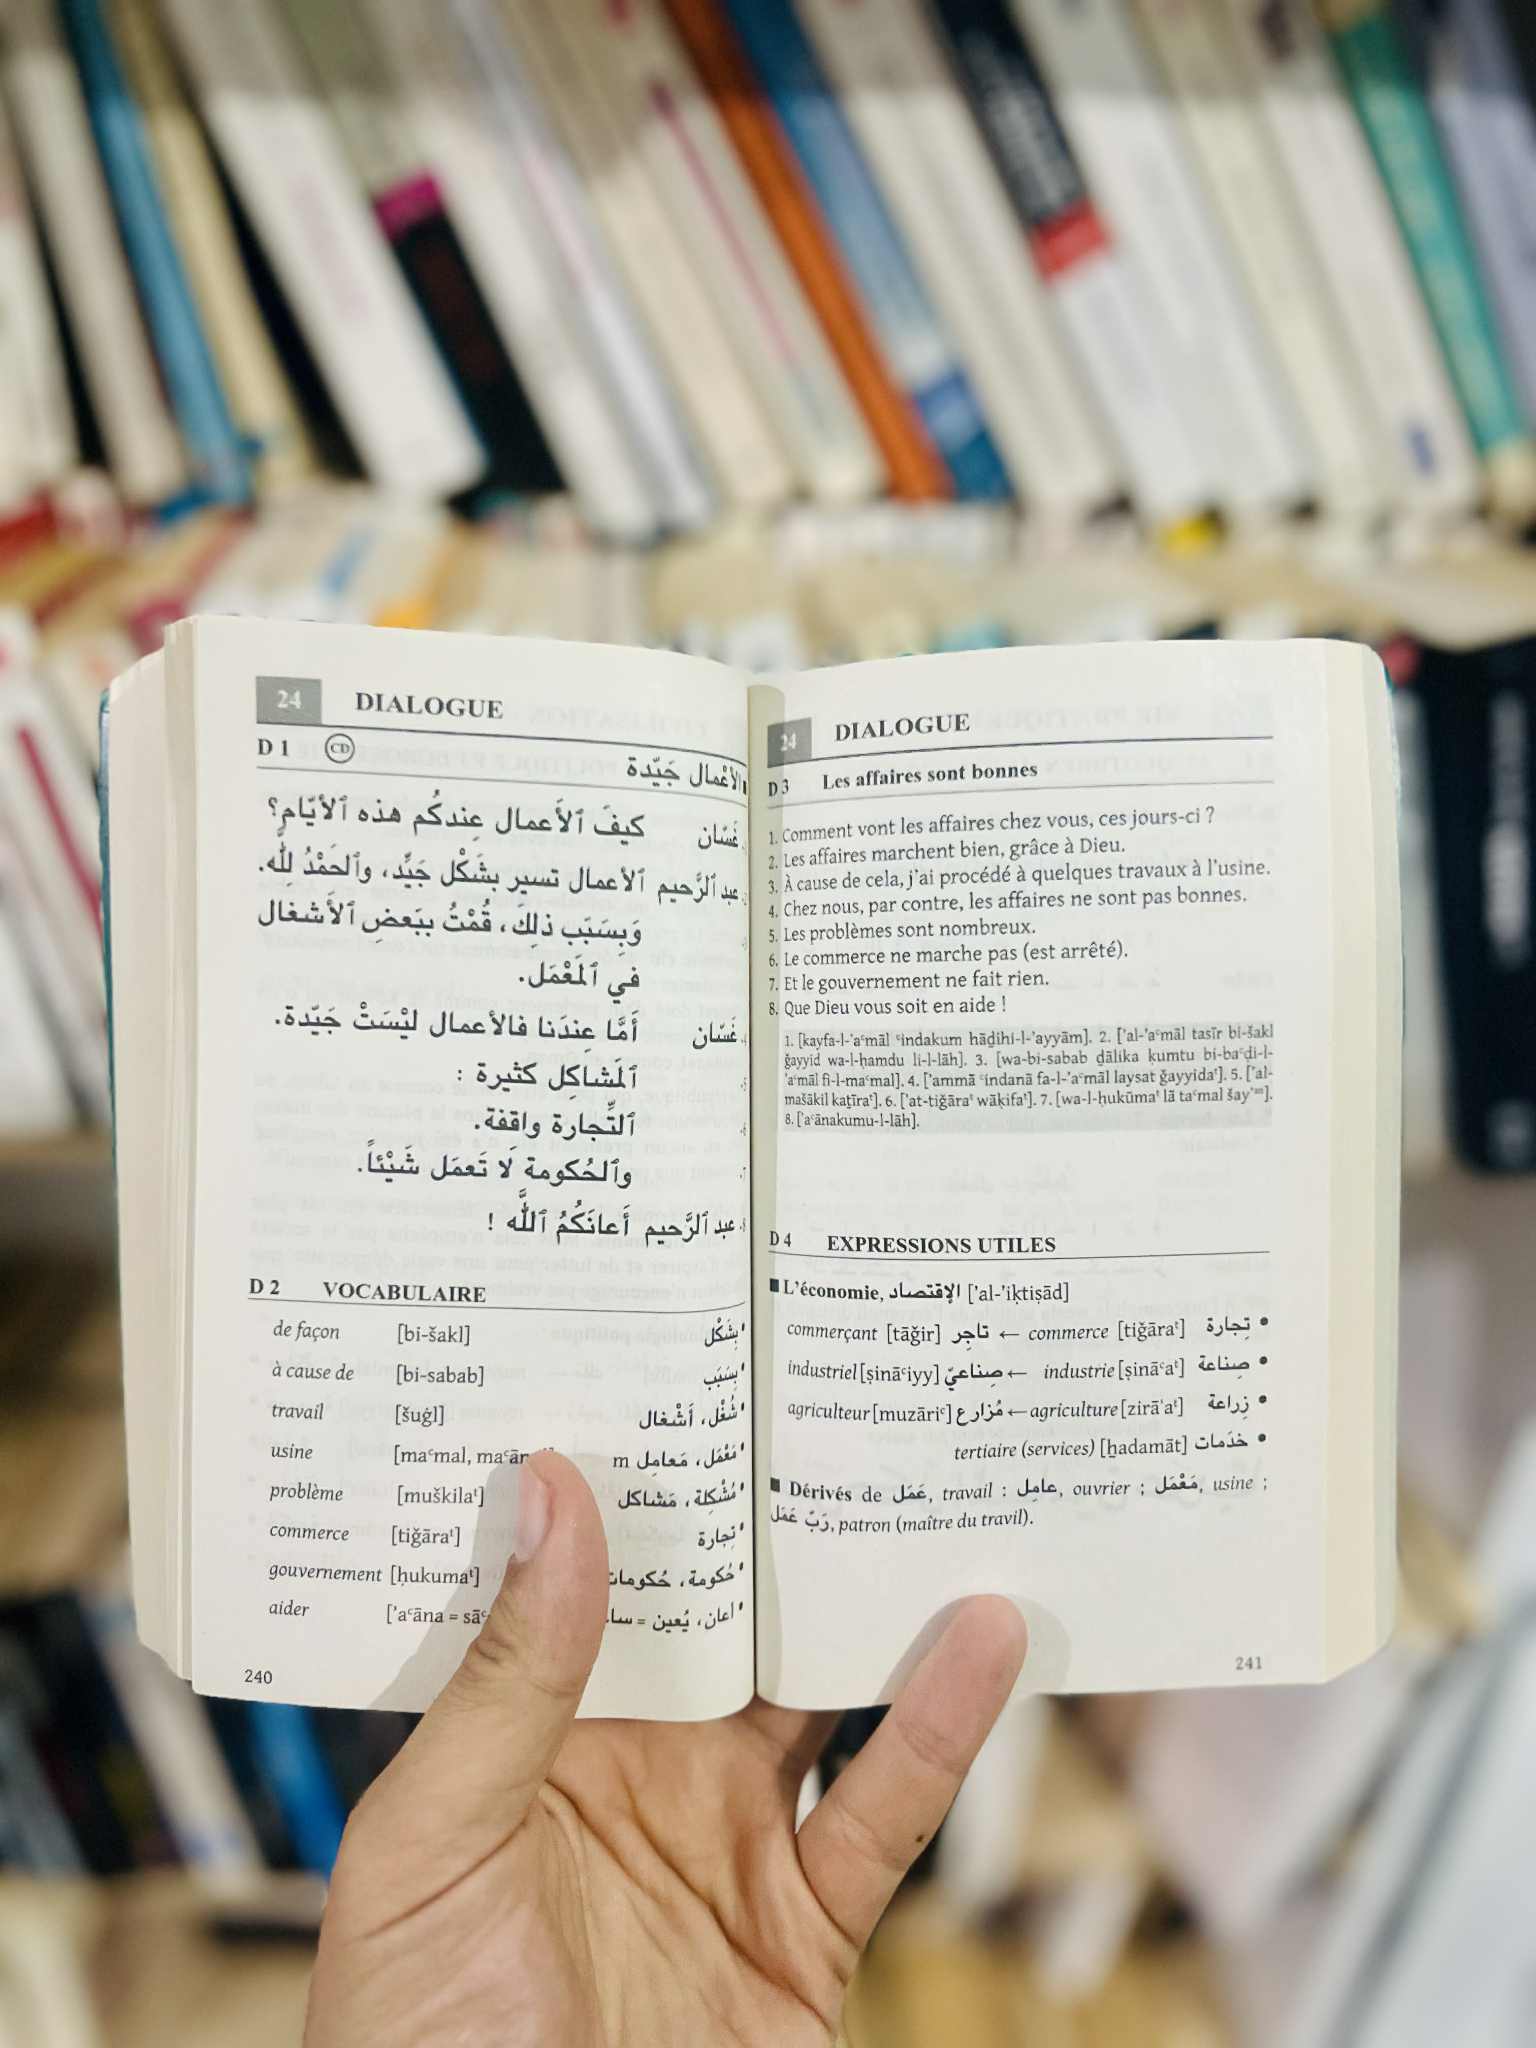 24 DIALOGUE
D 1 CD
الأعْمال جَيّدة
1. غَسّان كيفَ ٱلأَعمال عِندكُم هذه ٱلأيّامِ؟
2. عبد ٱلرَّحيم ٱلأعمال تسير بشَكْل جَيِّد، وٱلحَمْدُ لِلّه.
3. وَبِسَبَب ذلِكَ، قُمْتُ ببَعضِ ٱلأَشغال
في ٱلمَعْمَل.
4. غَسّان أَمَّا عِندَنا فالأعمال ليْسَتْ جَيّدة.
5. ٱلمَشاكِل كثيرة :
6. ٱلتِّجارة واقفة.
7. وٱلحُكومة لَا تَعمَل شَيْئاً.
8. عبد ٱلرَّحيم أَعانَكُمُ ٱللَّه !
D 2 VOCABULAIRE
de façon [bi-šakl] بِشَكْل
à cause de [bi-sabab] بِسَبَب
travail [šuġl] شُغْل، أَشْغال
usine [maᶜmal, m مَعْمَل، مَعامِل
problème [muškilaᵗ] مُشْكِلة، مَشاكل
commerce [tiǧāraᵗ] تِجارة
gouvernement [ḥukumaᵗ] حُكومة، حُكومات
aider ['aᶜāna = أعان، يُعين =
240
24 DIALOGUE
D 3 Les affaires sont bonnes
1. Comment vont les affaires chez vous, ces jours-ci ?
2. Les affaires marchent bien, grâce à Dieu.
3. À cause de cela, j'ai procédé à quelques travaux à l'usine.
4. Chez nous, par contre, les affaires ne sont pas bonnes.
5. Les problèmes sont nombreux.
6. Le commerce ne marche pas (est arrêté).
7. Et le gouvernement ne fait rien.
8. Que Dieu vous soit en aide !
1. [kayfa-l-'aᶜmāl ᶜindakum hāḏihi-l-'ayyām]. 2. ['al-'aᶜmāl tasīr bi-šakl
ǧayyid wa-l-ḥamdu li-l-lāh]. 3. [wa-bi-sabab ḏālika ḳumtu bi-baᶜḍi-l-
'aᶜmāl fi-l-maᶜmal]. 4. ['ammā ᶜindanā fa-l-'aᶜmāl laysat ǧayyidaᵗ]. 5. ['al-
mašākil kaṯīraᵗ]. 6. ['at-tiǧāraᵗ wāḳifaᵗ]. 7. [wa-l-ḥukūmaᵗ lā taᶜmal šay'ᵃⁿ].
8. ['aᶜānakumu-l-lāh].
D 4 EXPRESSIONS UTILES
■ L'économie, الإقتصاد ['al-'iḳtiṣād]
commerçant [tāǧir] تاجِر ← commerce [tiǧāraᵗ] تِجارة •
industriel [ṣināᶜiyy] صِناعيّ ← industrie [ṣināᶜaᵗ] صِناعة •
agriculteur [muzāriᶜ] مُزارع ← agriculture [zirā'aᵗ] زِراعة •
tertiaire (services) [ẖadamāt] خدَمات •
■ Dérivés de عَمَل, travail : عامِل, ouvrier ; مَعْمَل, usine ;
رَبّ عَمَل, patron (maître du travil).
241